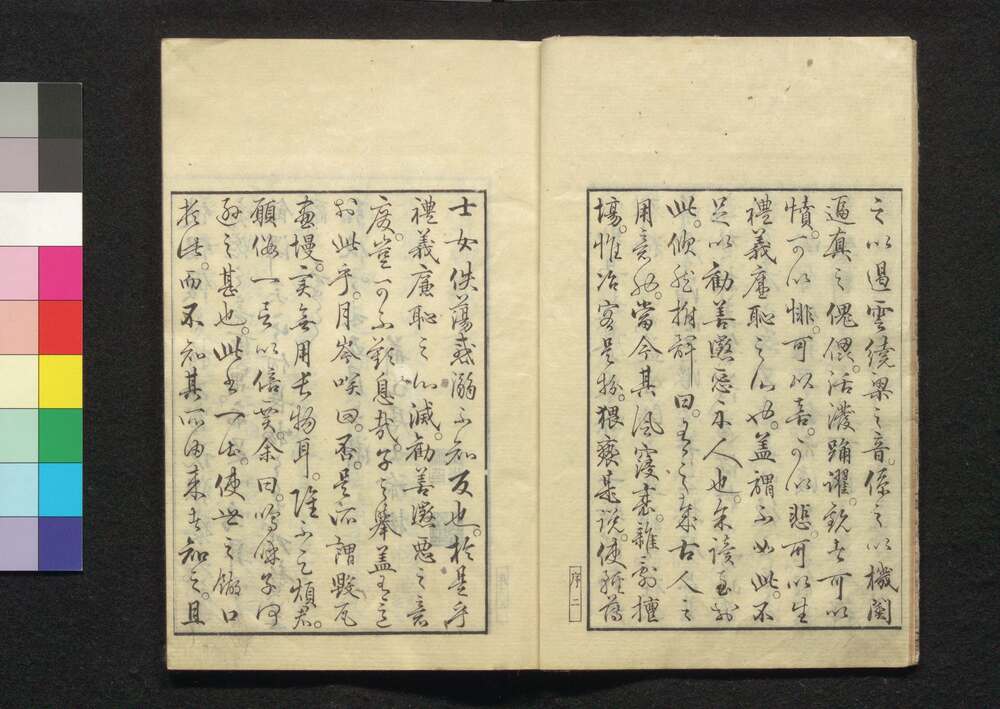 之以遏雲繞梁之音。係之以機関
逼真之傀儡。活溌踊躍。観者可以
憤。可以悱。可以喜。可以悲。可以生
禮義廉恥之心也。蓋謂不如此。不
足以勸善懲惡於人也。余読至於
此。掀髯拊評曰。有之哉古人之
用意也。當今其風寖衰。雜劇擅
場。惟冶容是務。猥褻是説。使
士女佚蕩惑溺不知反也。於是乎
禮義廉恥之心滅。勸善懲悪之意
廃。豈可不歎息哉。子之舉蓋有意
於此乎。月岑咲曰。否。是所謂毀瓦
畫墁。実無用長物耳。雖不足煩君。
願假一言以倍賈。余曰。嗚呼子
之甚也。此書一出。使世之餬口
於此。而不知其所由来者知之。且
序二